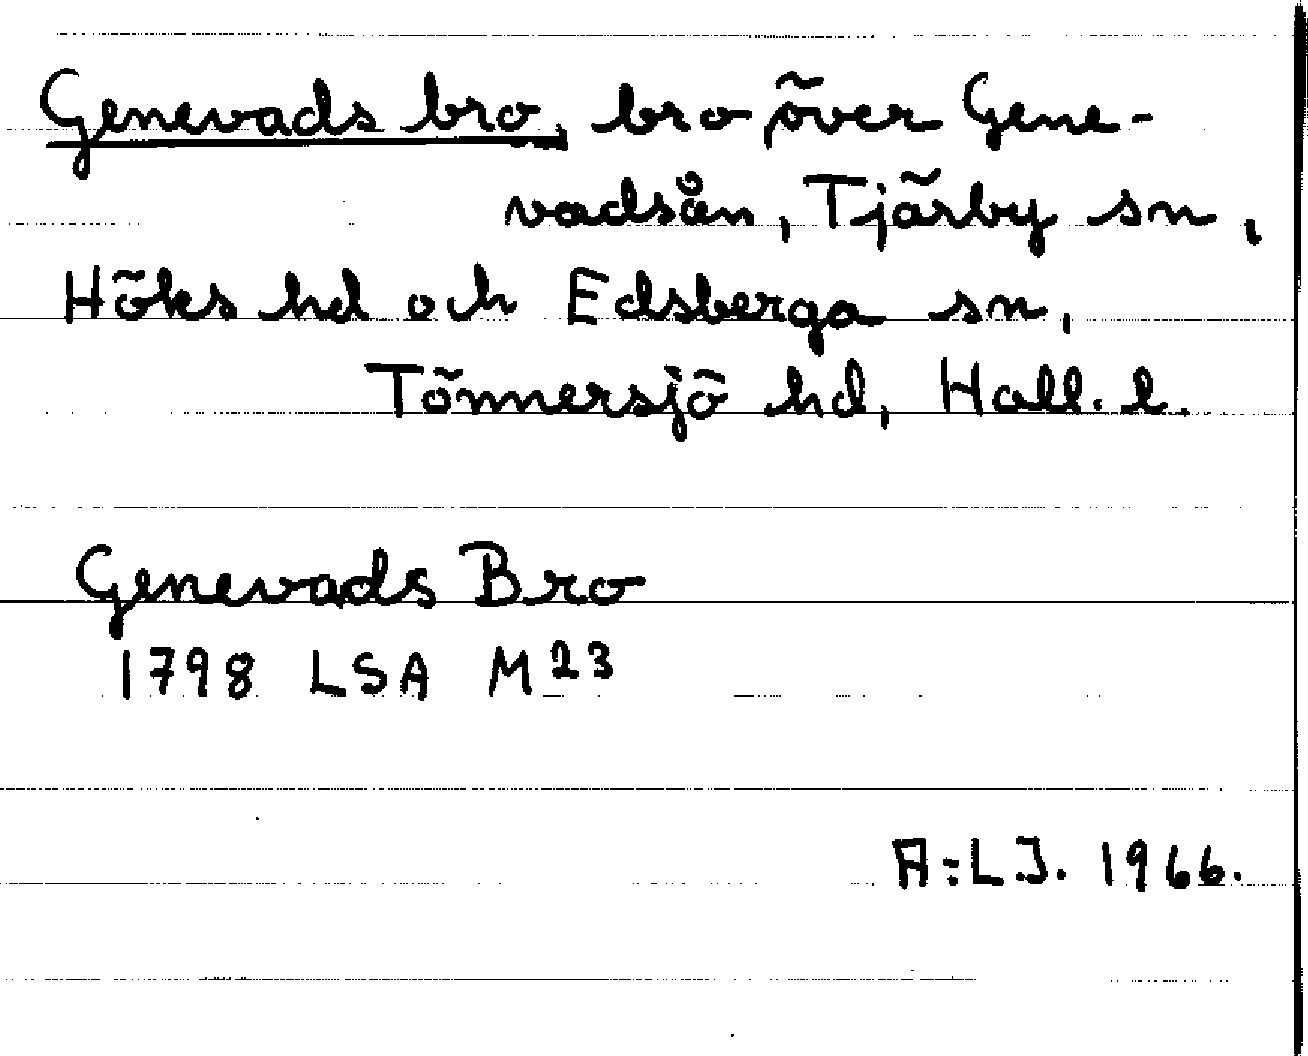 Genevads bro, bro över Gene-
vadsån, Tjärby sn,
Höks hd och Edsberga sn,
Tönnersjö hd, Hall. l.
Genevads Bro
1798 LSA M23
A:L.J. 1966.